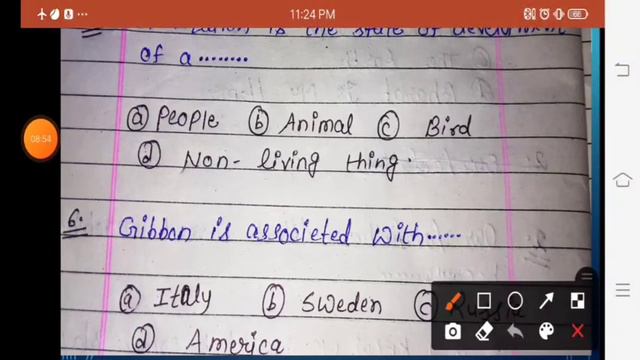 11:24 PM
66
is the state of development
of a........
ⓐ People ⓑ Animal ⓒ Bird
ⓓ Non-living thing.
08:54
6. Gibbon is associeted with......
ⓐ Italy ⓑ Sweden ⓒ Russia
ⓓ America